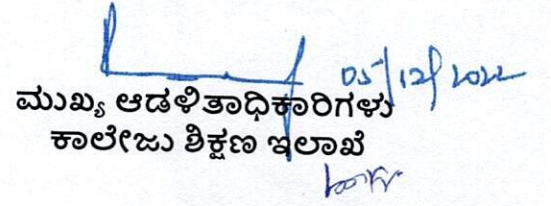 05/12/2022
ಮುಖ್ಯ ಆಡಳಿತಾಧಿಕಾರಿಗಳು
ಕಾಲೇಜು ಶಿಕ್ಷಣ ಇಲಾಖೆ